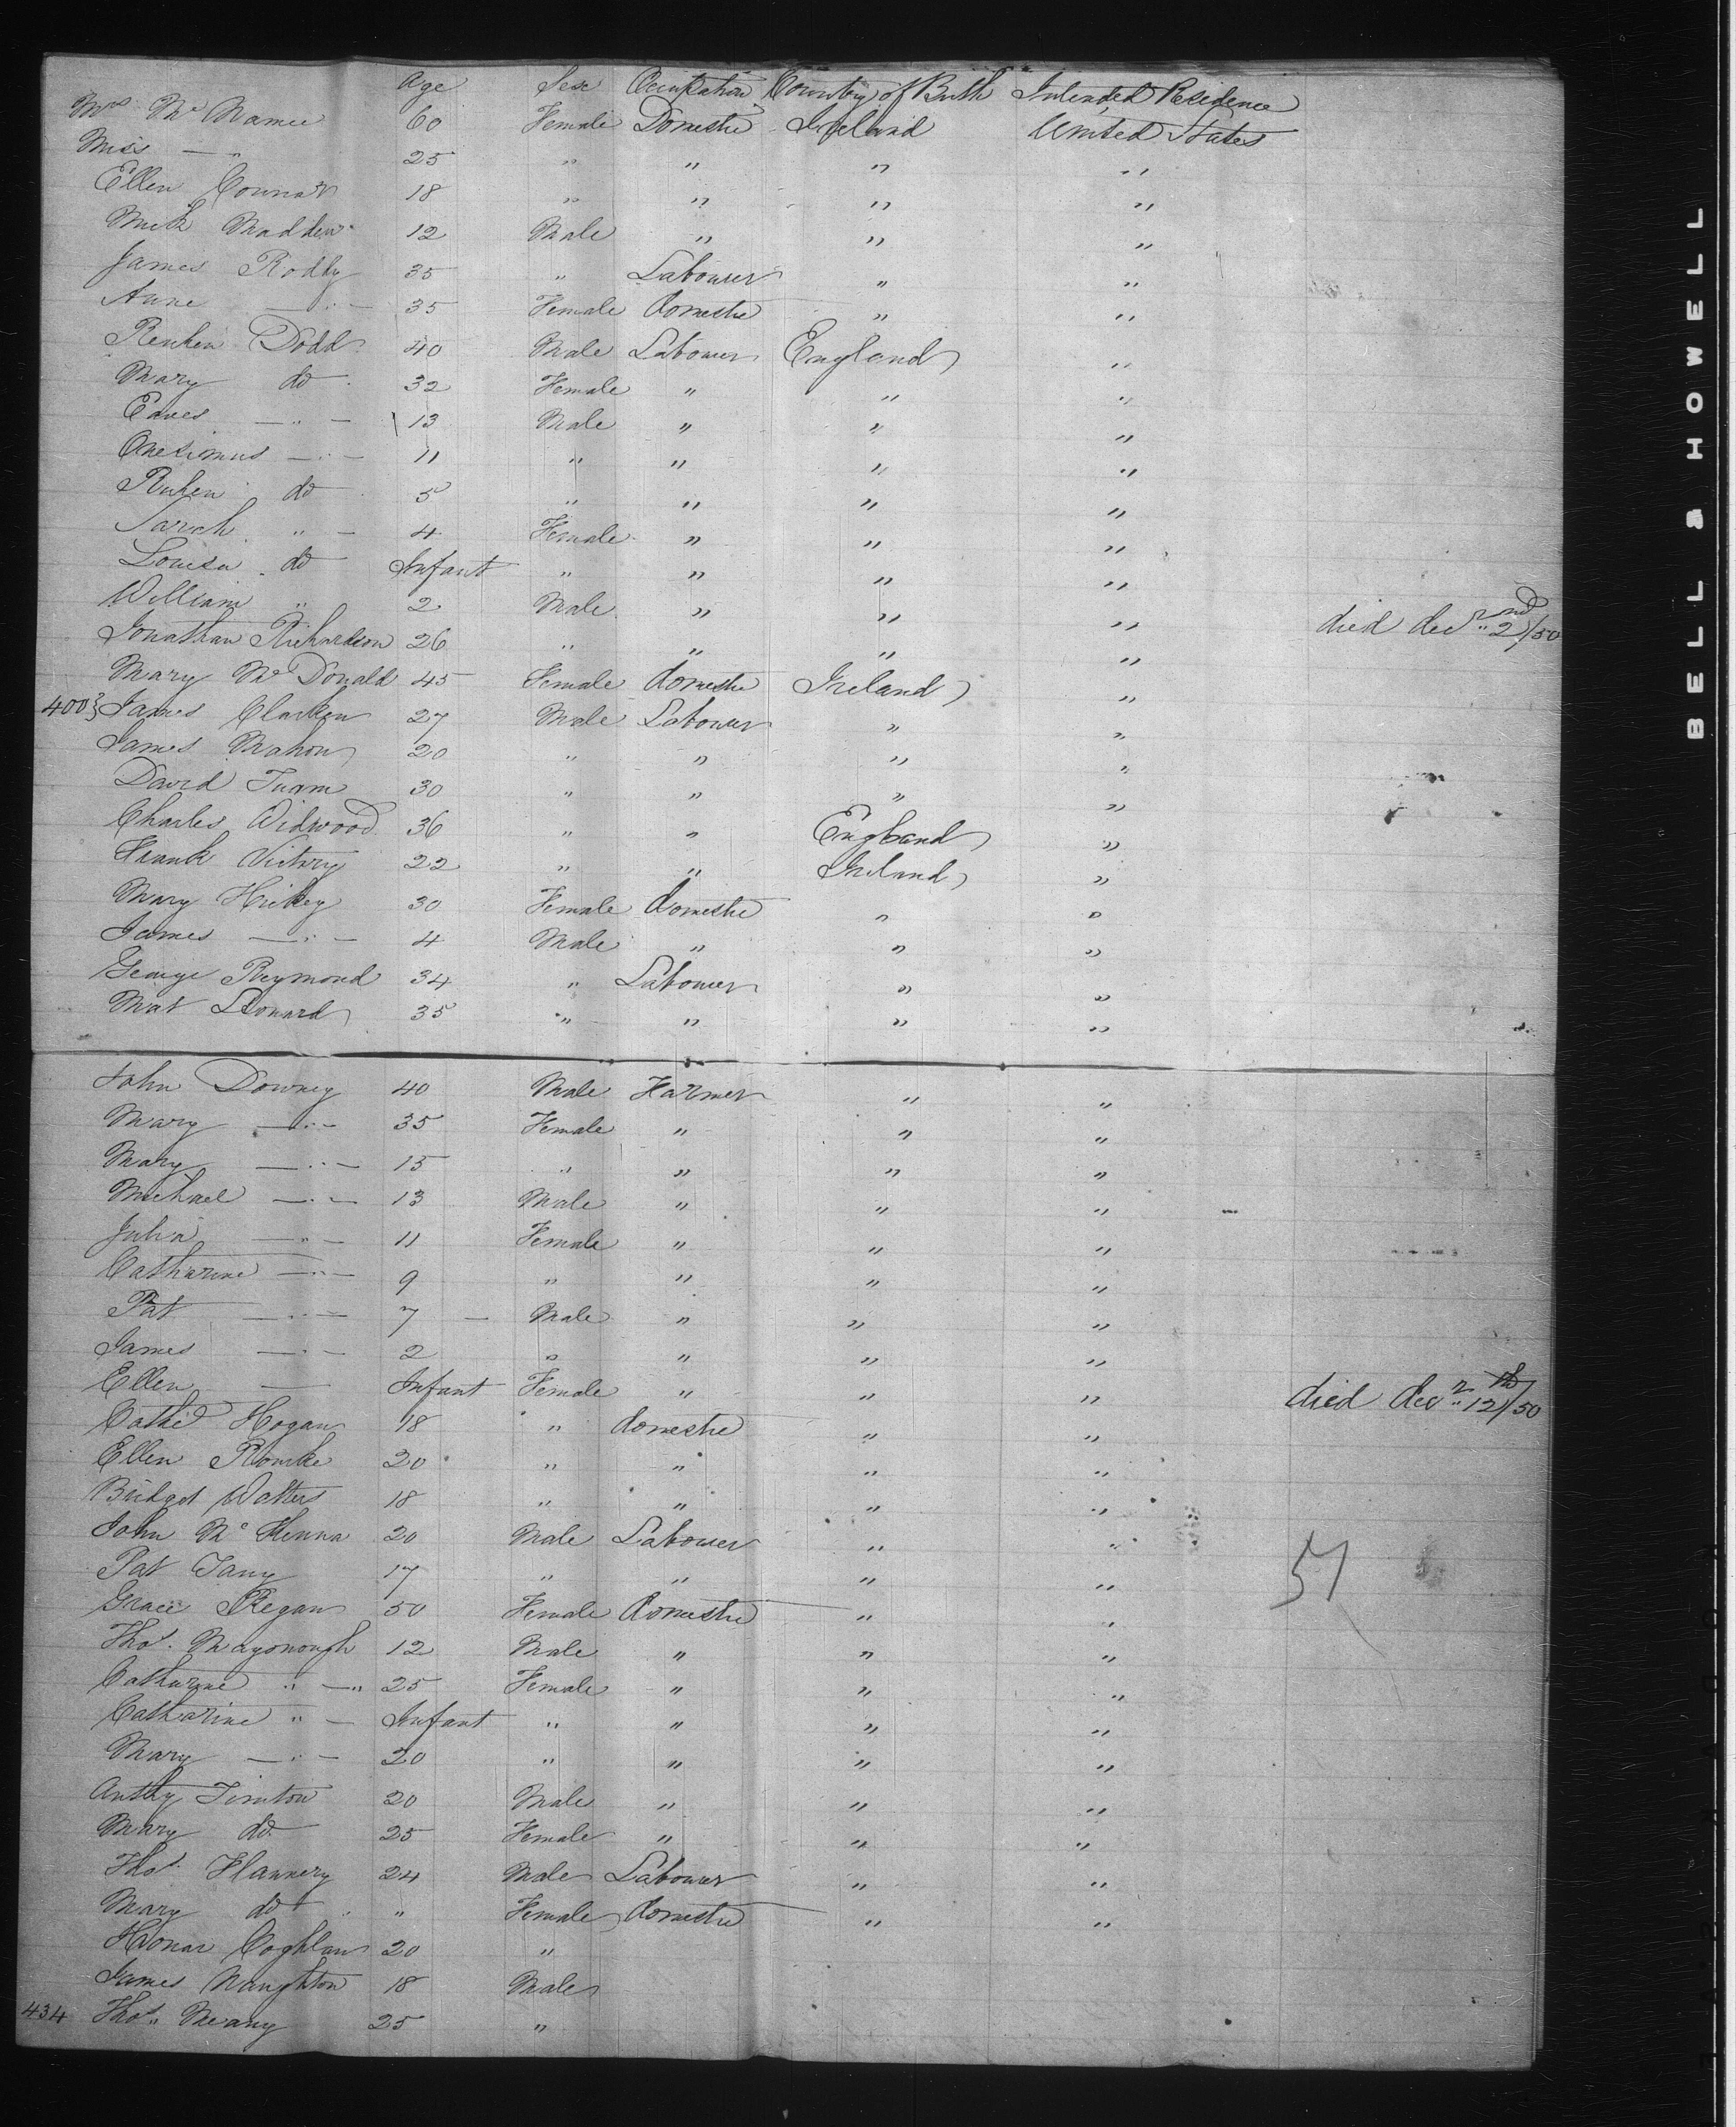 Age Sex Occupation Country of Birth Intended Residence
Mrs Mc Namee 60 Female Domestic Ireland United States
Miss — " 25 " " " "
Ellen Connor 18 " " " "
Mich Madden 12 Male " " "
James Roddy 35 " Labourer " "
Anne — " — 35 Female domestic " "
Reuben Dodd 40 Male Labourer England "
Mary do 32 Female " " "
Eaves — " — 13 Male " " "
Onesimus — " — 11 " " " "
Ruben do 5 " " " "
Sarah " — 4 Female " " "
Louisa do Infant " " " "
William " 2 Male " " " died decr 2nd/50
Jonathan Richardson 26 " " " "
Mary Mc Donald 45 Female domestic Ireland "
400} James Clarken 27 Male Labourer " "
James Mahon 20 " " " "
David Tuam 30 " " " "
Charles Widwood 36 " " England "
Frank Victory 22 " " Ireland "
Mary Hickey 30 Female domestic " "
James — " — 4 Male " " "
George Reymond 34 " Labourer " "
Mat Leonard 35 " " " "
John Downey 40 Male Farmer " "
Mary — " — 35 Female " " "
Mary — " — 15 " " " "
Michael — " — 13 Male " " "
Julia — " — 11 Female " " "
Catharine — " — 9 " " " "
Pat — " — 7 — Male " " "
James — " — 2 " " " "
Ellen — Infant Female " " " died decr 12th/50
Cathe Hogan 18 " domestic " "
Ellen Rourke 20 " " " "
Bridget Watters 18 " " " "
John Mc Kenna 20 Male Labourer " "
Pat Tany 17 " " " "
Grace Regan 50 Female domestic " "
Thos. Mayonough 12 Male " " "
Catharine " — " 25 Female " " "
Catharine " — Infant " " " "
Mary — " — 20 " " " "
Anthy Timton 20 Male " " "
Mary do 25 Female " " "
Thos. Flannery 24 Male Labourer " "
Mary do " Female domestic " "
Honor Coghlan 20 "
James Naughton 18 Male
434 Thos. Meany 25 "
57
BELL & HOWELL